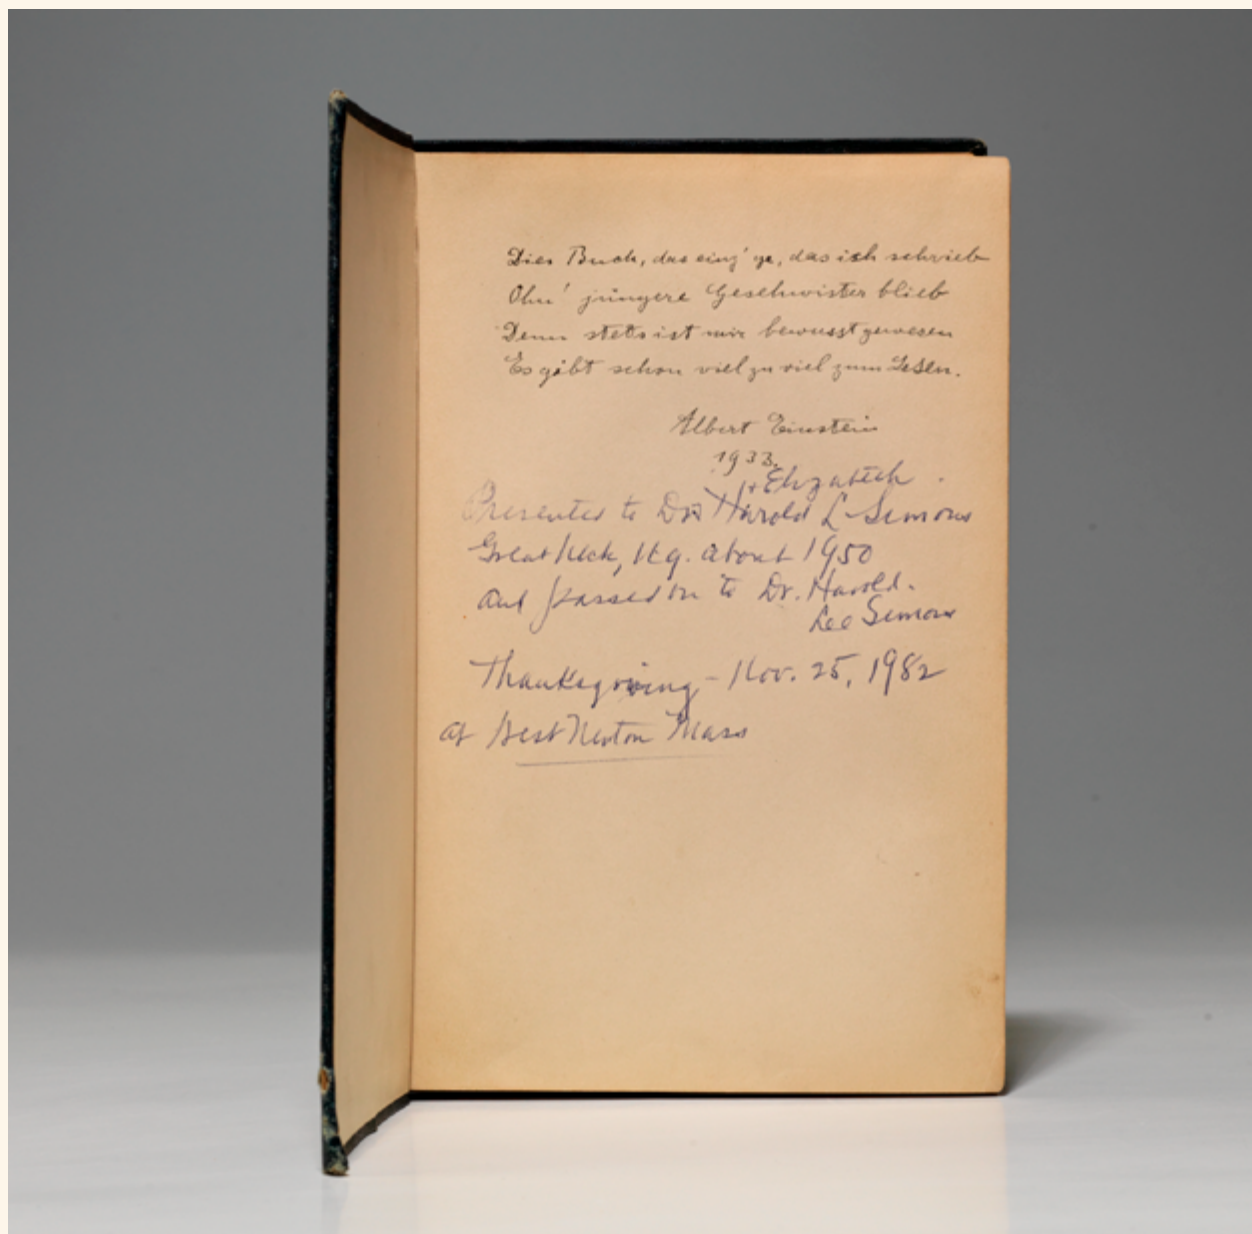 Dies Buch, das einz'ge, das ich schrieb
Ohn' jüngere Geschwister blieb
Denn stets ist mir bewusst gewesen
Es gibt schon viel zu viel zum Lesen.
Albert Einstein
1933.
+ Elizabeth
Presented to Drs Harold L Simons
Great Neck, N.Y. about 1950
and passed on to Dr. Harold.
Lee Simons
Thanksgiving - Nov. 25, 1982
at West Newton Mass